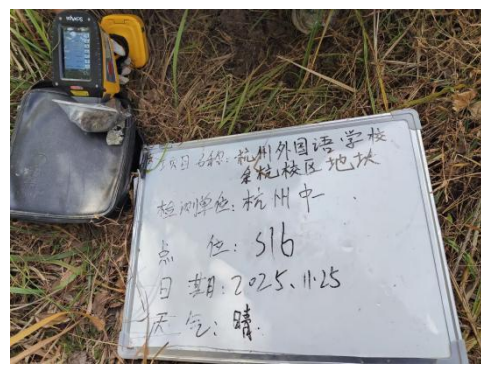 项目名称：杭州外国语学校
余杭校区地块
检测单位：杭州中一
点 位：S16
日 期：2025.11.25
天 气：晴.